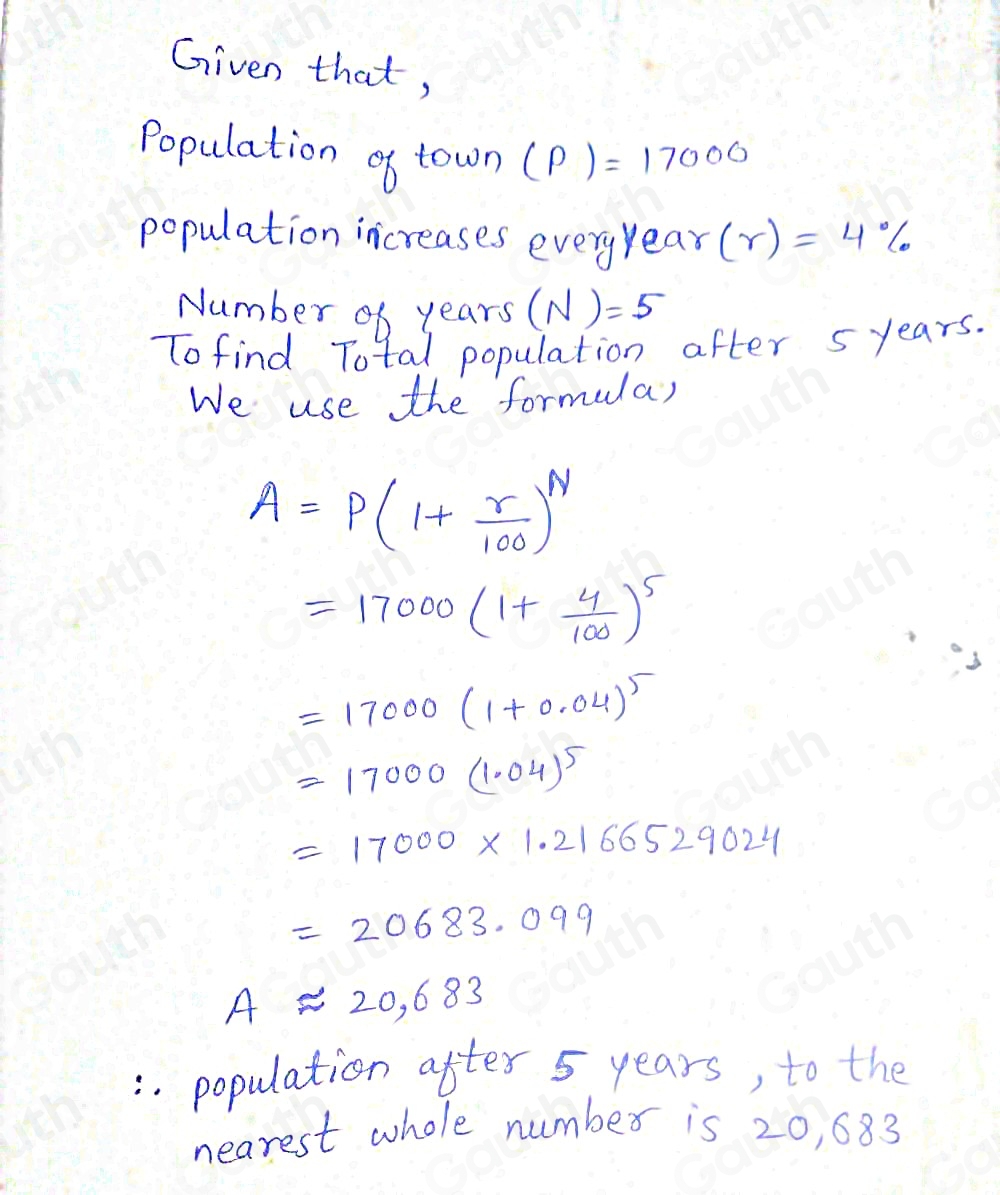 Given that,
Population of town (P) = 17000
population increases every year (r) = 4%
Number of years (N) = 5
To find Total population after 5 years.
We use the formula,
A = P(1 + r/100)^N
= 17000 (1 + 4/100)^5
= 17000 (1 + 0.04)^5
= 17000 (1.04)^5
= 17000 × 1.2166529024
= 20683.099
A ≈ 20,683
∴ population after 5 years, to the
nearest whole number is 20,683
Gauth